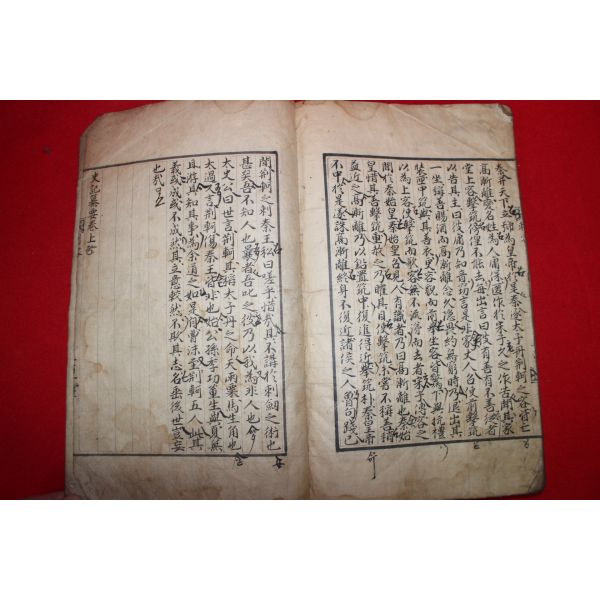 秦幷天下立號爲皇帝於是秦逐太子丹荊軻之客皆亡
高漸離變名姓爲人庸保匿作於宋子久之作苦聞其家
堂上客擊筑傍偟不能去每出言曰彼有善有不善從者
以告其主曰彼庸乃知音竊言是非家丈人召使前擊筑
一坐稱善賜酒而高漸離念久隱畏約無窮時乃退出其
裝匣中筑與其善衣更容貌而前擧坐客皆驚下與抗禮
以爲上客使擊筑而歌客無不流涕而去者宋子傳客之
聞於秦始皇秦始皇召見人有識者乃曰高漸離也秦始
皇惜其善擊筑重赦之乃矐其目使擊筑未嘗不稱善稍
益近之高漸離乃以鉛置筑中復進得近擧筑朴秦皇帝
不中於是遂誅高漸離終身不復近諸侯之人魯句踐已
聞荊軻之刺秦王私曰嗟乎惜哉其不講於刺劍之術也
甚矣吾不知人也曩者吾叱之彼乃以我爲非人也
太史公曰世言荊軻其稱太子丹之命天雨粟馬生角也
太過又言荊軻傷秦王皆非也始公孫季功董生與夏無
且游具知其事爲余道之如是自曹沫至荊軻五人此其
義或成或不成然其立意較然不欺其志名垂後世豈妄
也哉
史記纂要卷上